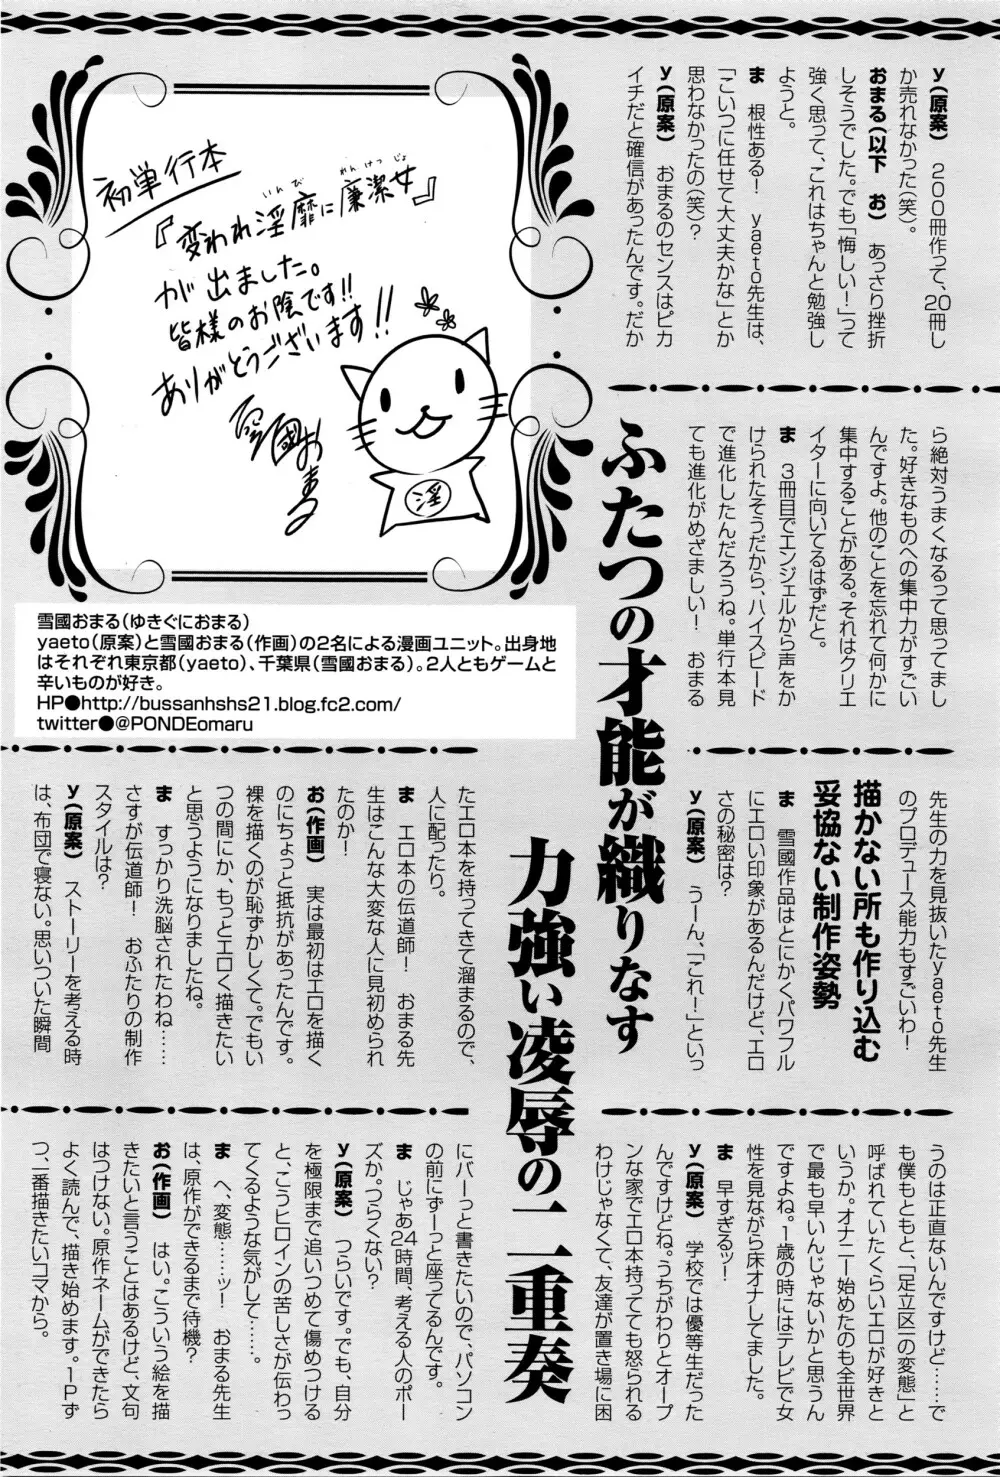 y(原案)　200冊作って、20冊し
か売れなかった(笑)。
おまる(以下　お)　あっさり挫折
しそうでした。でも「悔しい！」って
強く思って、これはちゃんと勉強し
ようと。
ま　根性ある！　yaeto先生は、
「こいつに任せて大丈夫かな」とか
思わなかったの(笑)？
y(原案)　おまるのセンスはピカ
イチだと確信があったんです。だか
初単行本
『変われ淫靡に廉潔女』
いんび
れんけつじょ
が出ました。
皆様のお陰です!!
ありがとうございます!!
雪國おまる
淫
雪國おまる(ゆきぐにおまる)
yaeto(原案)と雪國おまる(作画)の2名による漫画ユニット。出身地
はそれぞれ東京都(yaeto)、千葉県(雪國おまる)。2人ともゲームと
辛いものが好き。
HP●http://bussanhshs21.blog.fc2.com/
twitter●@PONDEomaru
ら絶対うまくなるって思ってまし
た。好きなものへの集中力がすごい
んですよ。他のことを忘れて何かに
集中することがある。それはクリエ
イターに向いてるはずだと。
ま　3冊目でエンジェルから声をか
けられたそうだから、ハイスピード
で進化したんだろうね。単行本見
ても進化がめざましい！　おまる
ふたつの才能が織りなす
力強い凌辱の二重奏
先生の力を見抜いたyaeto先生
のプロデュース能力もすごいわ！
描かない所も作り込む
妥協ない制作姿勢
ま　雪國作品はとにかくパワフル
にエロい印象があるんだけど、エロ
さの秘密は？
y(原案)　うーん、「これ！」といっ
うのは正直ないんですけど……で
も僕もともと、「足立区一の変態」と
呼ばれていたくらいエロが好きと
ま　早すぎるッ！
y(原案)　学校では優等生だった
んですけどね。うちがわりとオープ
ンな家でエロ本持ってても怒られる
わけじゃなくて、友達が置き場に困
たエロ本を持ってきて溜まるので、
人に配ったり。
ま　エロ本の伝道師！　おまる先
生はこんな大変な人に見初められ
たのか！
お(作画)　実は最初はエロを描く
のにちょっと抵抗があったんです。
裸を描くのが恥ずかしくて。でもい
つの間にか、もっとエロく描きたい
と思うようになりましたね。
ま　すっかり洗脳されたわね……
さすが伝道師！　おふたりの制作
スタイルは？
y(原案)　ストーリーを考える時
は、布団で寝ない。思いついた瞬間
にバーっと書きたいので、パソコン
の前にずーっと座ってるんです。
ま　じゃあ24時間、考える人のポー
ズか。つらくない？
y(原案)　つらいです。でも、自分
を極限まで追いつめて傷めつける
と、こうヒロインの苦しさが伝わっ
てくるような気がして……。
ま　へ、変態……ッ！　おまる先生
は、原作ができるまで待機？
お(作画)　はい。こういう絵を描
きたいと言うことはあるけど、文句
はつけない。原作ネームができたら
よく読んで、描き始めます。1Pず
つ、一番描きたいコマから。